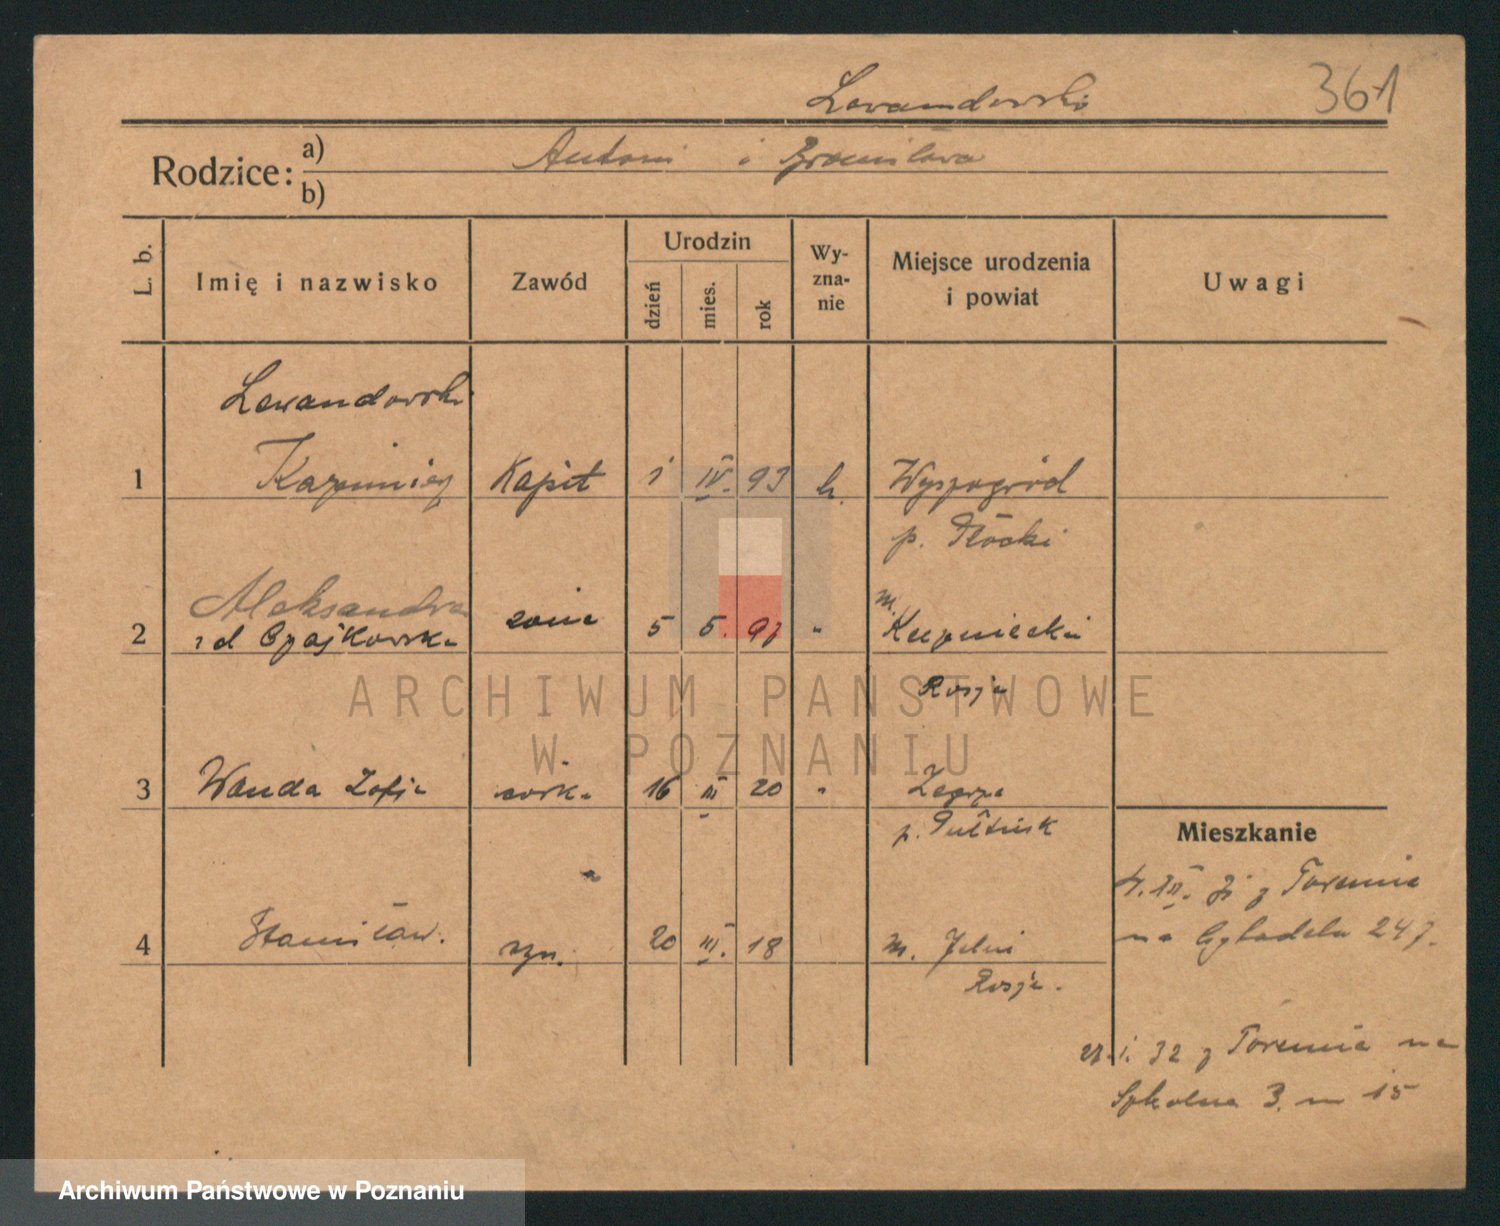 Lewandowski
361
Rodzice: a) Antoni i Bronisława
b)
L. b.
Imię i nazwisko
Zawód
Urodzin
dzień
mies.
rok
Wy-
zna-
nie
Miejsce urodzenia
i powiat
Uwagi
Lewandowski
1 Kazimierz Kapit 1 IV. 93 Wyszogród
p. Płocki
Aleksandra
m.
2 zd Czajkowska żona 5 5. 97 "
Rosja
3 Wanda Zofja córka 16 III 20 " Zegrze
p. Pułtusk
4 Stanisław. syn. 20 III. 18 m.
Rosja.
Mieszkanie
z Torunia
na Cytadelę 247.
27. I. 32 z Torunia na
Szkolna 3. m 15
ARCHIWUM PAŃSTWOWE
W POZNANIU
Archiwum Państwowe w Poznaniu